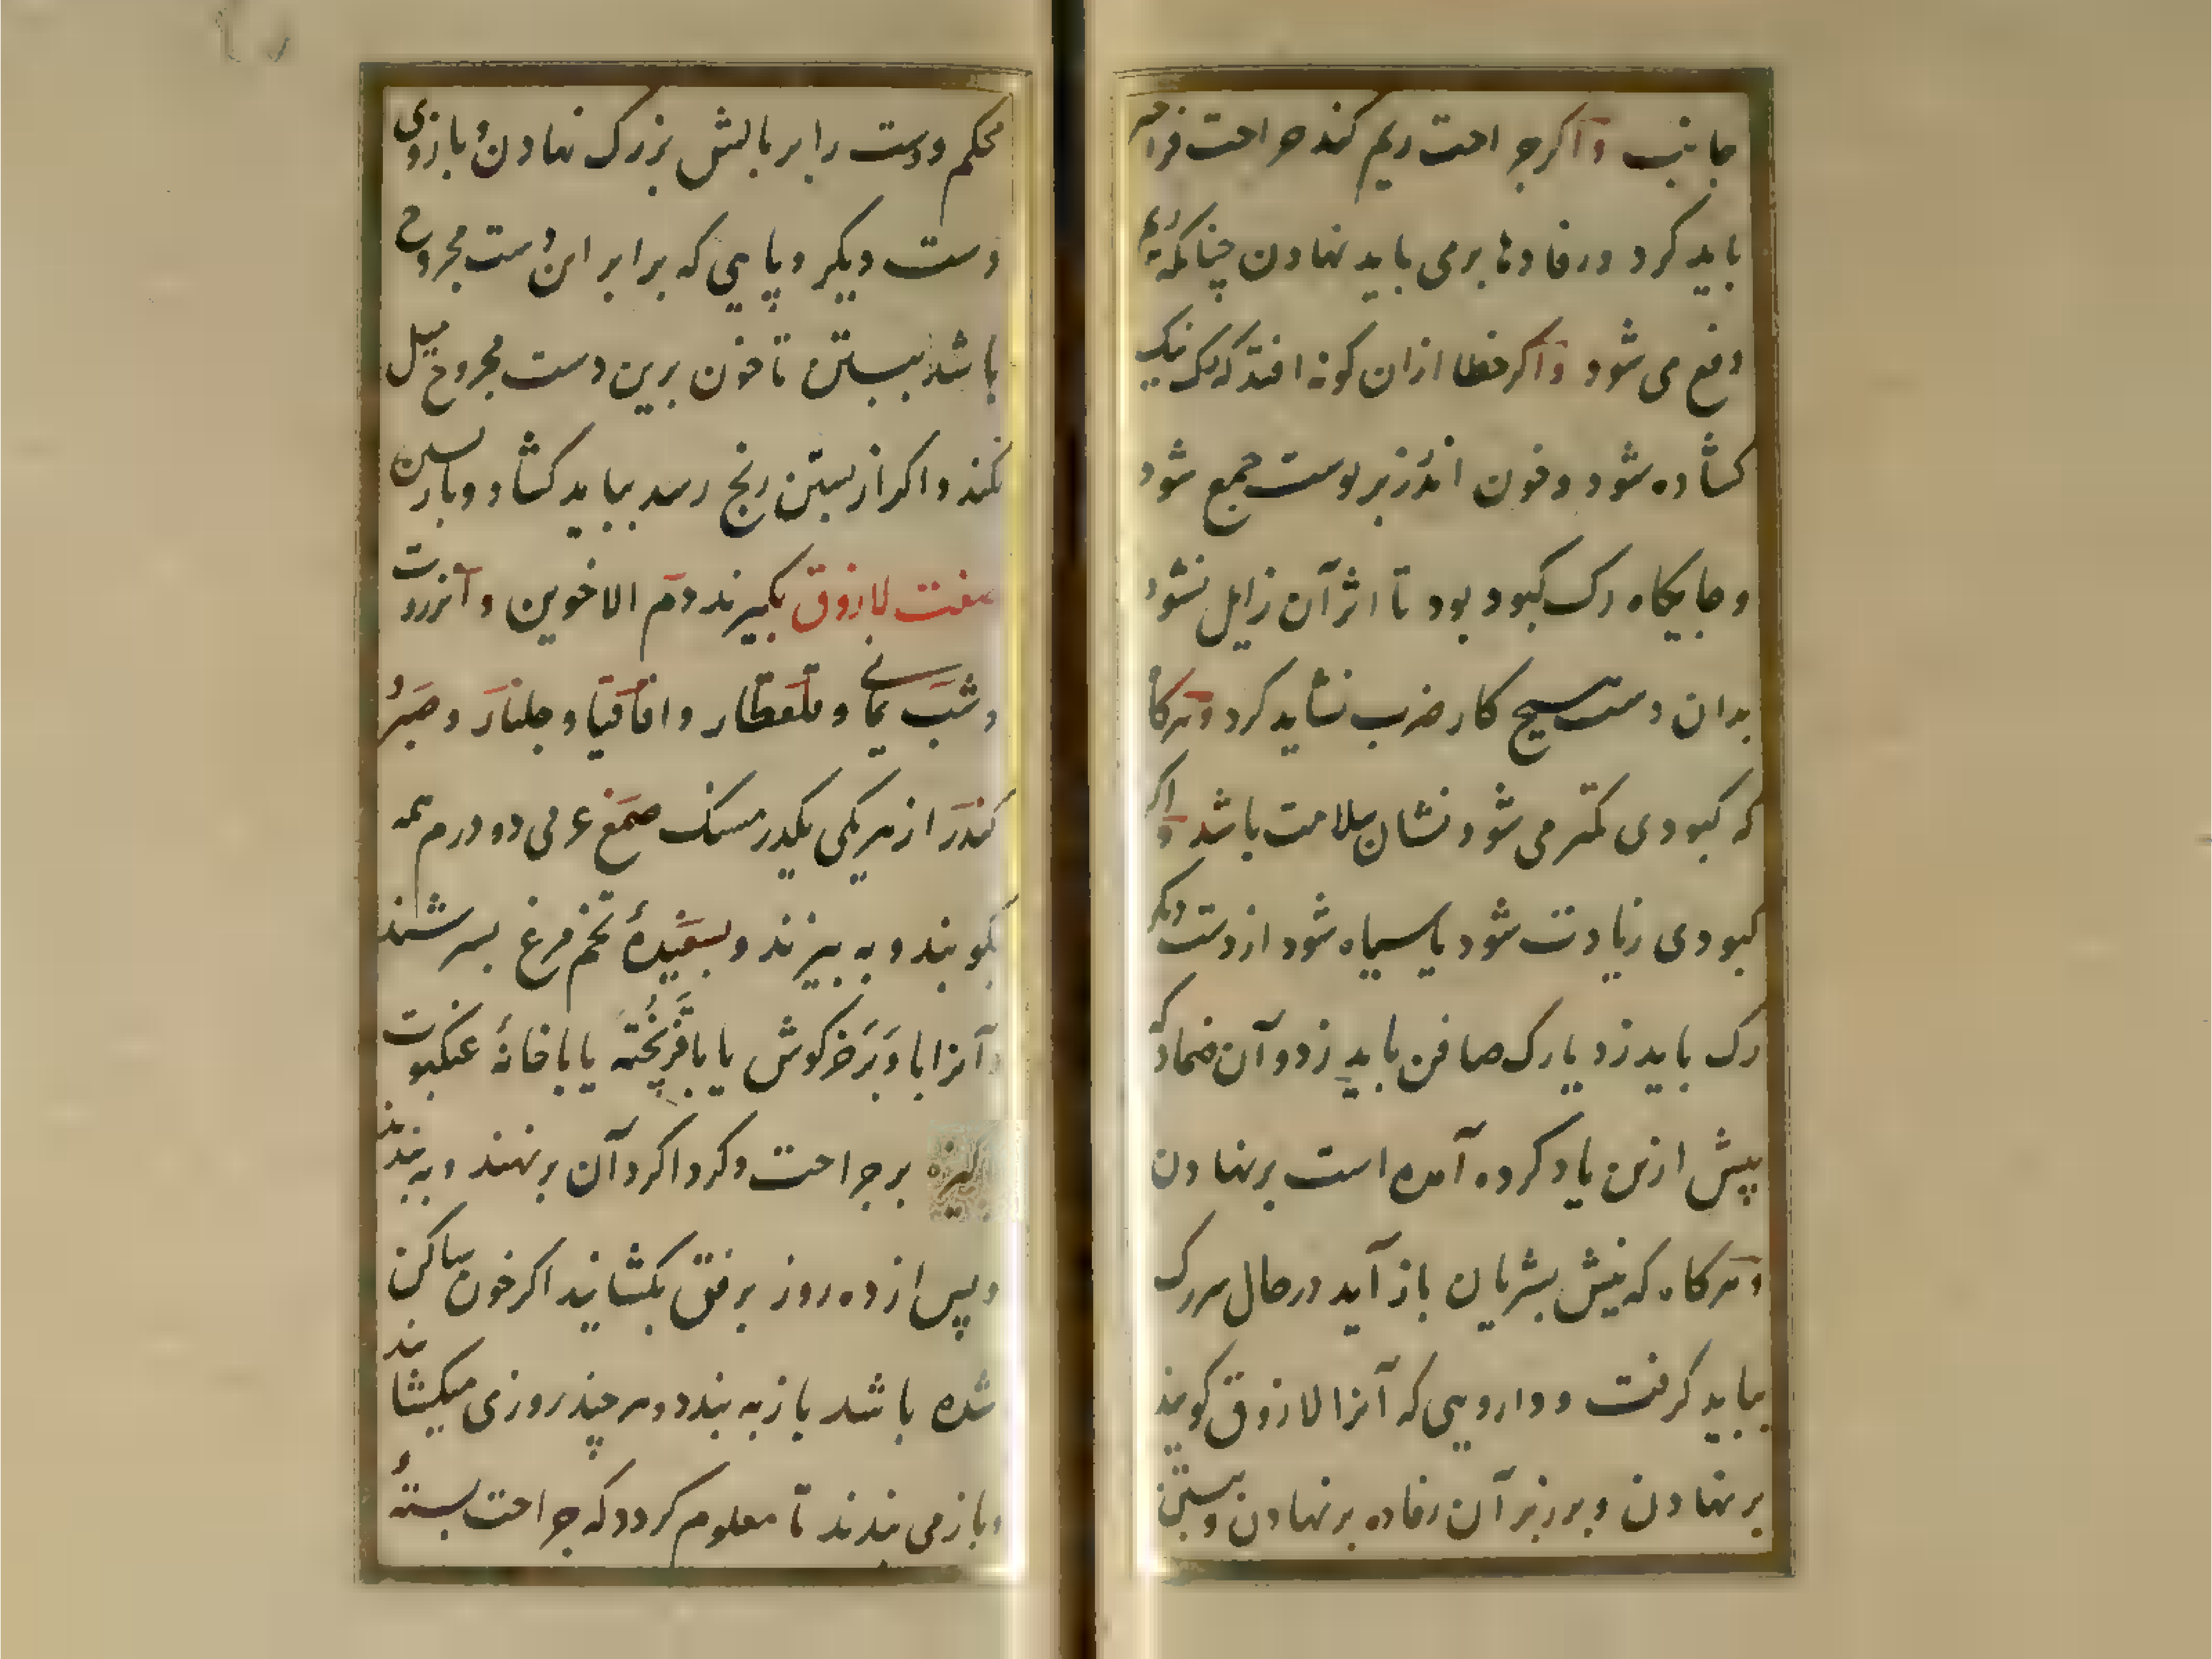 جانب و اکر جراحت ریم کند جراحت فراختر
باید کرد و رفادها برمی باید نهادن چنانکه ریم
دفع می شود و اکر خطا ازان کونه افتد که رک نیک
کشاده شود و خون اندر زیر پوست جمع شود
و جایکاه رک کبود بود تا اثر آن زایل نشود
بدان دست هیچ کار ضرب نشاید کرد و هرکاه
که کبودی کمتر می شود نشان سلامت باشد و اکر
کبودی زیادت شود یا سیاه شود از دست دیکر
رک باید زد یا رک صافن باید زد و آن ضماد که
پیش ازین یاد کرده آمده است برنهادن
و هرکاه که نیش بشریان باز آید در حال سر رک
بباید کرفت و دارویی که آنرا لازوق کویند
برنهادن و بر زبر آن رفاده برنهادن و ببستن
محکم و دست را بر بالش بزرک نهادن و بازوی
دست دیکر و پایی که برابر این دست مجروح
باشد ببستن تا خون برین دست مجروح میل
نکند و اکر از بستن رنج رسد بباید کشاد و باز بستن
صفت لازوق بکیرند دم الاخوین و آنزروت
و شب یمانی و قلقطار و اقاقیا و جلنار و صبر و
کندر از هر یکی یکدرمسنک صمغ عربی دو درم همه
بکوبند و به بیزند و بسفیدهٔ تخم مرغ بسرشند
و آنرا با وَبَر خرکوش یا با قزپُخته یا با خانهٔ عنکبوت
بر جراحت و کرداکرد آن برنهند و به بندند
و پس از ده روز برفق بکشایند اکر خون ساکن
شده باشد باز به بندد و هر چند روزی میکشایند
و باز می بندند تا معلوم کردد که جراحت بسته